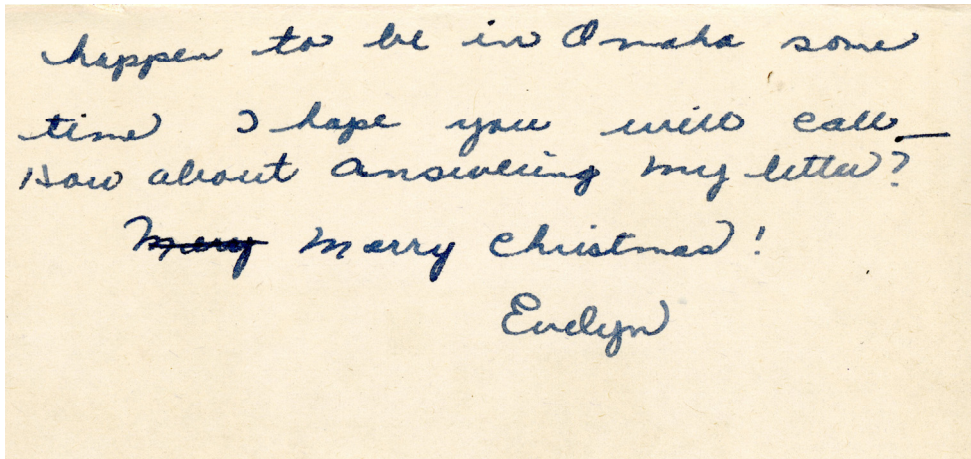 happen to be in Omaha some
time I hope you will call_
How about answering my letter?
Mery Merry Christmas!
Evelyn